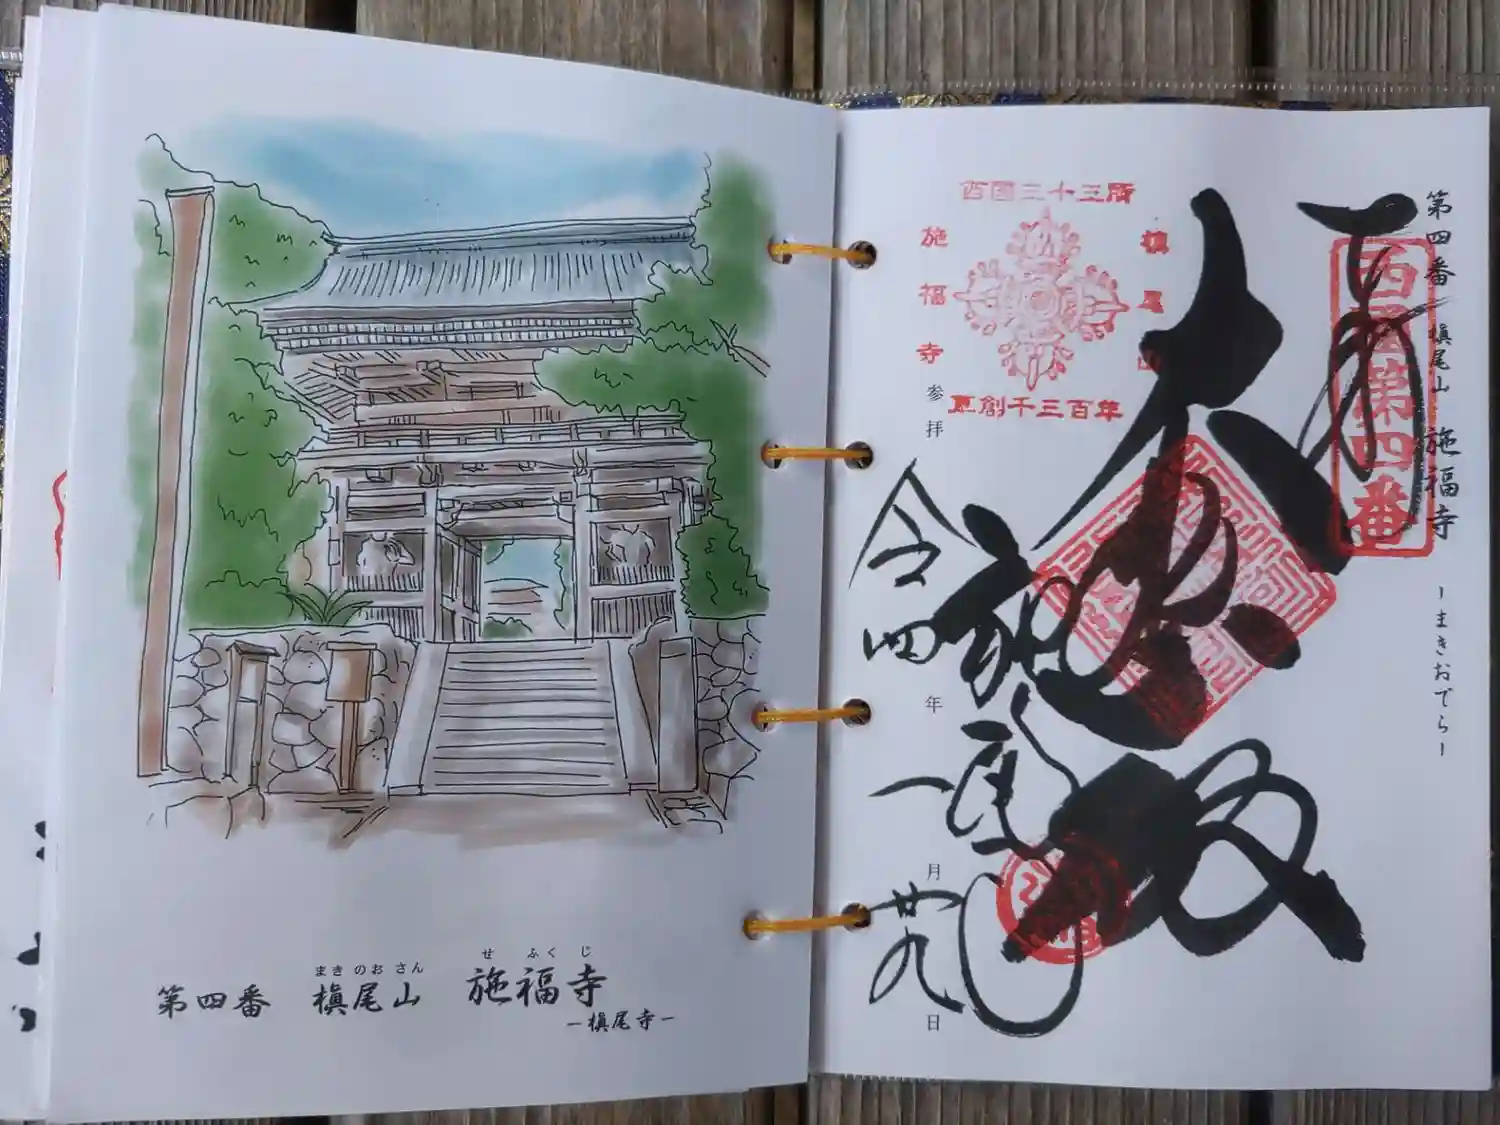 第四番 槇尾山 施福寺
まきのおさん せふくじ
－槇尾寺－
第四番 槇尾山 施福寺 －まきおでら－
西国第四番
奉拝
大悲殿
西国三十三所
槇尾山
施福寺
草創千三百年
施福寺
参拝 令四年一月廿九日